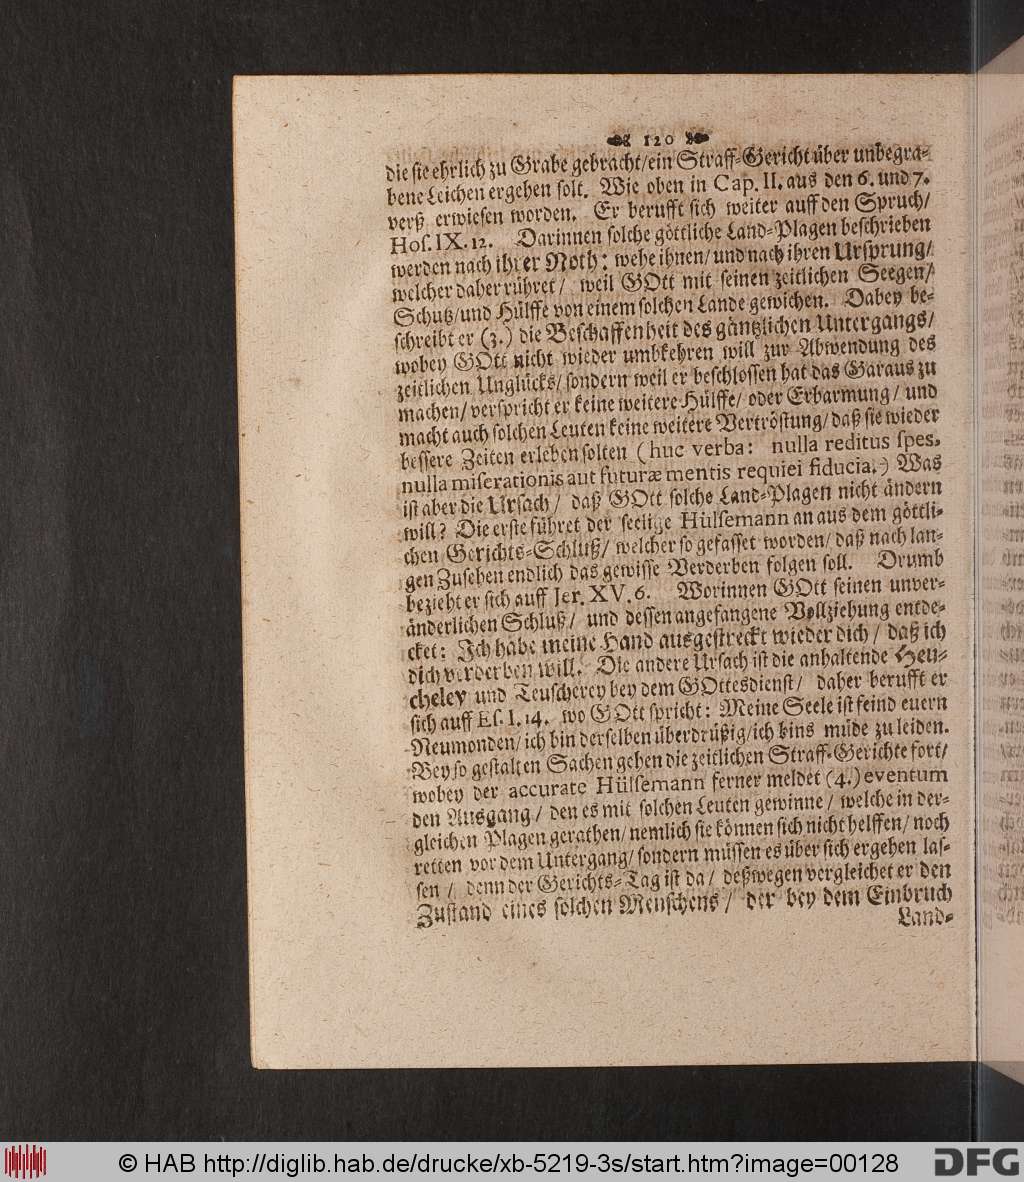 120
die sie ehrlich zu Grabe gebracht/ein Straff-Gericht über unbegra-
bene Leichen ergehen solt. Wie oben in Cap. II. aus den 6. und 7.
verß erwiesen worden. Er berufft sich weiter auff den Spruch/
Hos. IX. 12. Darinnen solche göttliche Land-Plagen beschrieben
werden nach ihrer Noth: wehe ihnen/und nach ihren Ursprung/
welcher daher rühret/ weil GOtt mit seinen zeitlichen Seegen/
Schutz/und Hülffe von einem solchen Lande gewichen. Dabey be-
schreibt er (3.) die Beschaffenheit des gäntzlichen Untergangs/
wobey GOtt nicht wieder umbkehren will zur Abwendung des
zeitlichen Unglücks/sondern weil er beschlossen hat das Garaus zu
machen/verspricht er keine weitere Hülffe/oder Erbarmung/und
macht auch solchen Leuten keine weitere Vertröstung/daß sie wieder
bessere Zeiten erleben solten (huc verba: nulla reditus spes,
nulla miserationis aut futuræ mentis requiei fiducia.) Was
ist aber die Ursach/ daß GOtt solche Land-Plagen nicht ändern
will? Die erste führet der seelige Hülsemann an aus dem göttli-
chen Gerichts-Schluß/ welcher so gefasset worden/daß nach lan-
gen Zusehen endlich das gewisse Verderben folgen soll. Drumb
bezieht er sich auff Jer. XV. 6. Worinnen GOtt seinen unver-
änderlichen Schluß/ und dessen angefangene Vollziehung entde-
cket: Ich habe meine Hand ausgestreckt wieder dich/ daß ich
dich verderben will. Die andere Ursach ist die anhaltende Heu-
cheley und Teuscherey bey dem GOttesdienst/ daher berufft er
sich auff Es. I. 14. wo GOtt spricht: Meine Seele ist feind euern
Neumonden/ich bin derselben überdrüßig/ich bins müde zu leiden.
Bey so gestalten Sachen gehen die zeitlichen Straff-Gerichte fort/
wobey der accurate Hülsemann ferner meldet (4.) eventum
den Ausgang/ den es mit solchen Leuten gewinne/ welche in der-
gleichen Plagen gerathen/nemlich sie können sich nicht helffen/noch
retten vor dem Untergang/sondern müssen es über sich ergehen las-
sen/ denn der Gerichts-Tag ist da/ deßwegen vergleichet er den
Zustand eines solchen Menschens/ der bey dem Einbruch
Land-
© HAB http://diglib.hab.de/drucke/xb-5219-3s/start.htm?image=00128
DFG